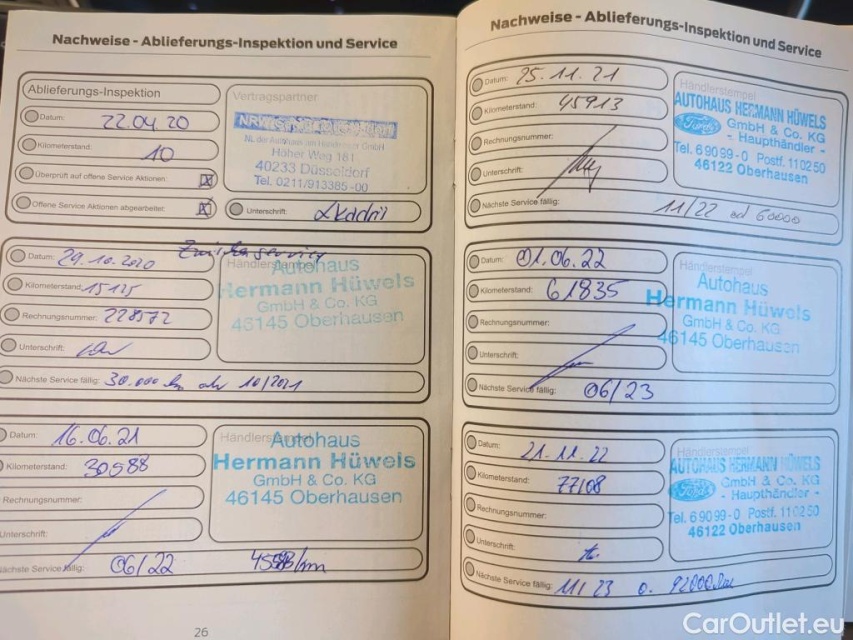 Nachweise - Ablieferungs-Inspektion und Service
Ablieferungs-Inspektion
Datum: 22.04.20
Kilometerstand: 10
Überprüft auf offene Service Aktionen: X
Offene Service Aktionen abgearbeitet: X
Vertragspartner
NL der Autohaus am GmbH
Höher Weg 181
40233 Düsseldorf
Tel. 0211/913385-00
Unterschrift:
Datum: 29.10.2020
Kilometerstand: 15125
Rechnungsnummer: 228572
Unterschrift:
Nächste Service fällig: 30.000 km 10/2021
Händlerstempel
Autohaus
Hermann Hüwels
GmbH & Co. KG
46145 Oberhausen
Datum: 16.06.21
Kilometerstand: 30588
Rechnungsnummer:
Unterschrift:
Nächste Service fällig: 06/22
Händlerstempel
Autohaus
Hermann Hüwels
GmbH & Co. KG
46145 Oberhausen
26
Nachweise - Ablieferungs-Inspektion und Service
Datum: 25.11.21
Kilometerstand: 45913
Rechnungsnummer:
Unterschrift:
Nächste Service fällig: 11/22 od 60000
Händlerstempel
AUTOHAUS HERMANN HÜWELS
Ford GmbH & Co. KG
- Haupthändler -
Tel. 69099-0 Postf. 110250
46122 Oberhausen
Datum: 01.06.22
Kilometerstand: 61835
Rechnungsnummer:
Unterschrift:
Nächste Service fällig: 06/23
Händlerstempel
Autohaus
Hermann Hüwels
GmbH & Co. KG
46145 Oberhausen
Datum: 21.11.22
Kilometerstand: 77108
Rechnungsnummer:
Unterschrift:
Nächste Service fällig: 11/23 o. 92000
Händlerstempel
AUTOHAUS HERMANN HÜWELS
Ford GmbH & Co. KG
- Haupthändler -
Tel. 69099-0 Postf. 110250
46122 Oberhausen
CarOutlet.eu